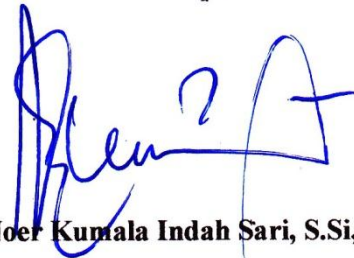 Noer Kumala Indah Sari, S.Si,